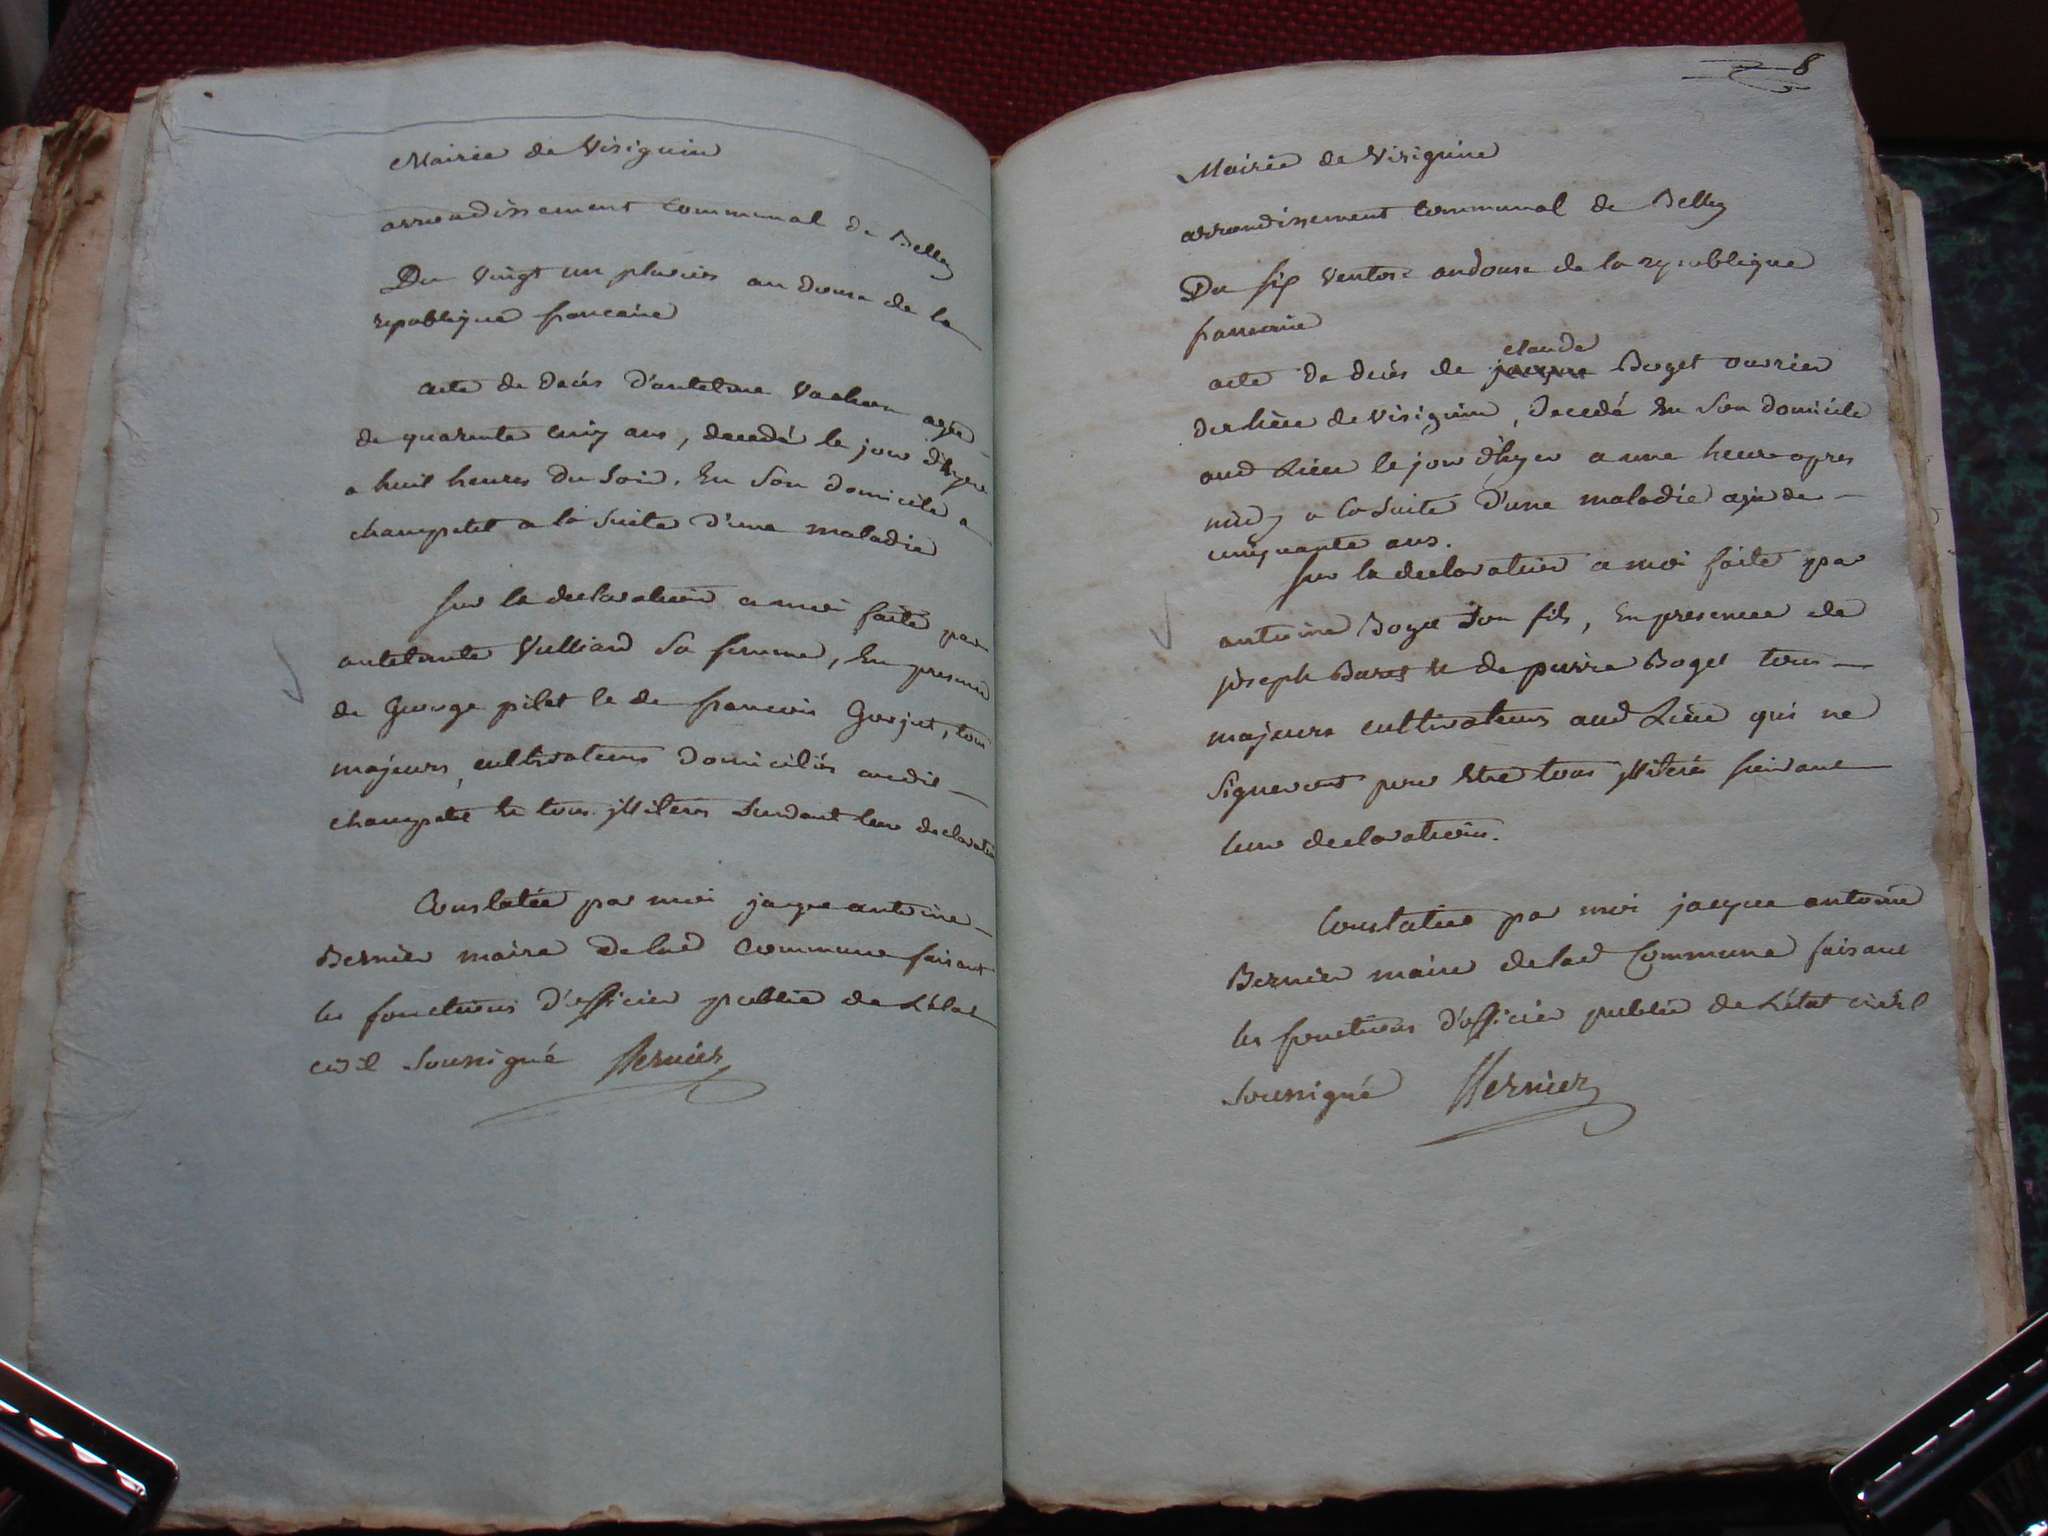 Mairie de Virignin
arrondissement communal de Belley
Du vingt un pluvios an douse de la
republique francaise
acte de décés d'antelme Vachon agé
de quarente cinq ans, decedé le jour d'hyer
a huit heures du Soir, En Son domicile a
champetel a la Suite d'une maladie
Sur la declaration a moi faite par
Vulliard Sa femme, En presence
de George pilet & de francois Gorjut, tous
majeurs, cultivateurs domiciliés audit
champetel & tous illiterés Suivant leur declaration
Constatée par moi jacque antoine
Bernier maire de lad commune faisant
les fonctions d'officier public de L'état
civil Soussigné Bernier
8
Mairie de Virignin
arrondissement communal de Belley
Du Six Ventose an douse de la republique
francaise
claude
acte de décés de jacque Boget ouvrier
de Virignin, decedé En Son domicile
aud Lieu le jour d'hyer a une heure apres
midy a la Suite d'une maladie agé de
cinquante ans.
Sur la declaration a moi faite par
antoine Boget Son fils, En presence de
joseph & de pierre Boget tous
majeurs cultivateurs aud Lieu qui ne
Signeront pour Etre tous illiterés Suivant
leur declaration.
Constatée par moi jacque antoine
Bernier maire de lad Commune faisant
les fonctions d'officier public de L'état civil
Soussigné Bernier